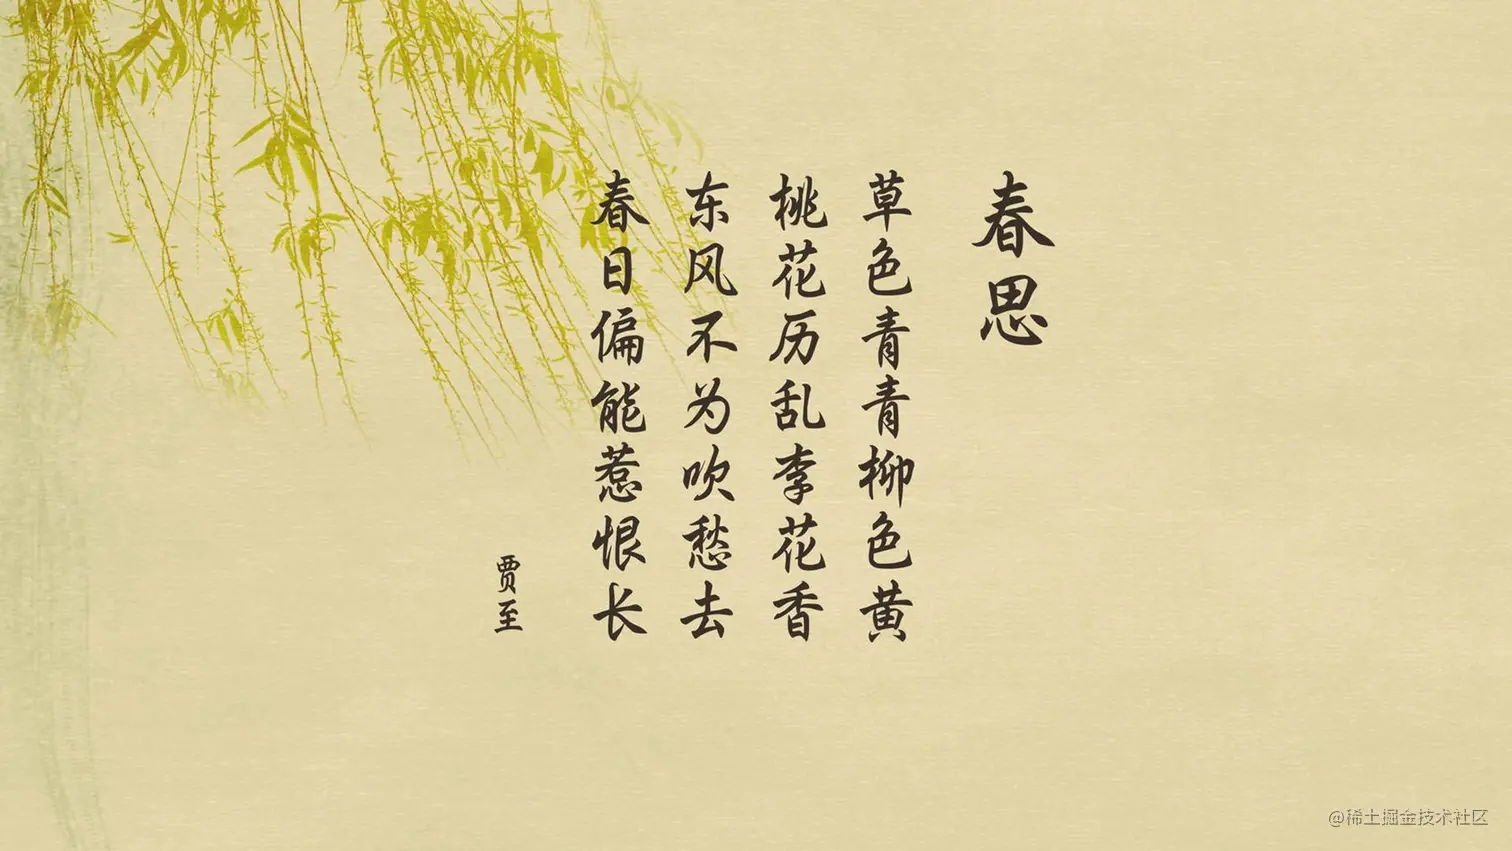 春思
草色青青柳色黄
桃花历乱李花香
东风不为吹愁去
春日偏能惹恨长
贾至
@稀土掘金技术社区